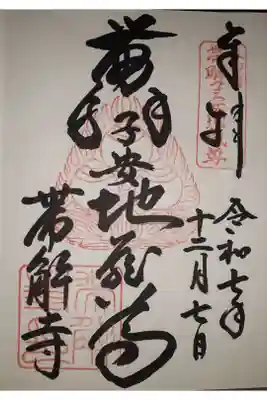 奉拝
令和七年
十二月七日
子安地蔵尊
帯解寺